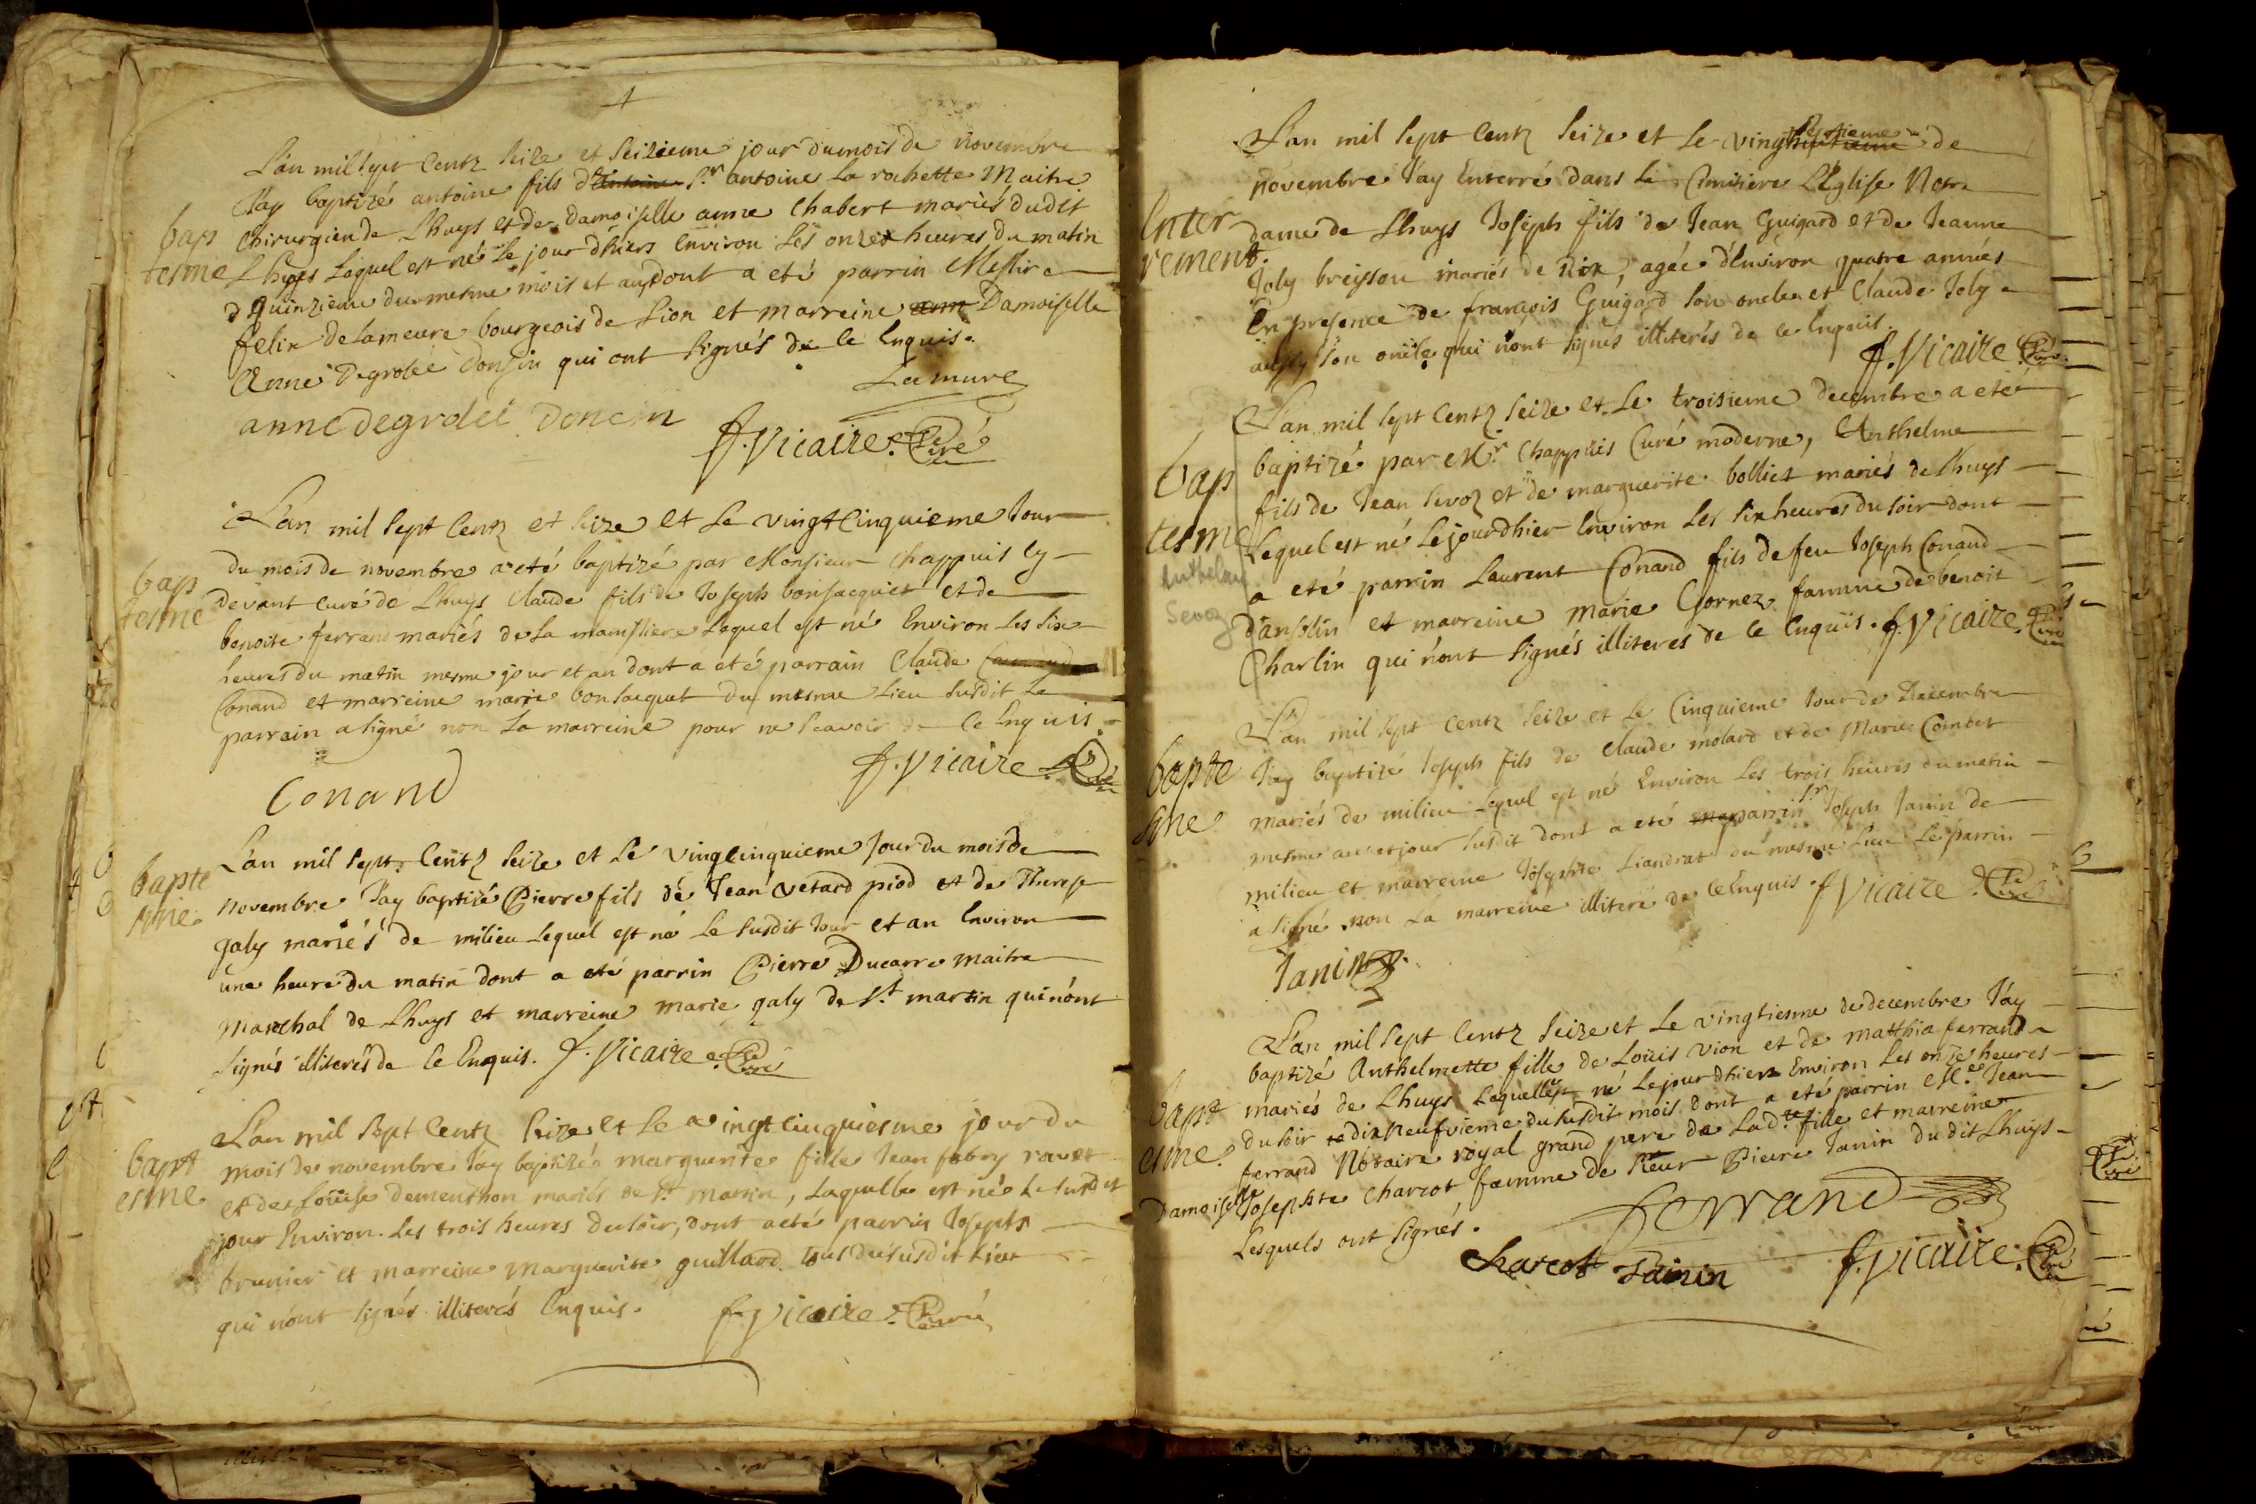 L'an mil sept Centz Seize et Seizieme jour du mois de novembre
J'ay baptizé antoine fils d'Antoine S.r antoine La rochette Maitre
Chirurgien de Lhuys et de damoiselle anne Chabert mariés dudit
bap
tesme
Lhuys Laquel est né le jour d'hiers Environ Les onze heures du matin
quinzieme du mesme mois et an dont a eté parrin Messire
felix de Lameure bourgeois de Lion et marreine Damoiselle
Anne Degrolée Donsin qui ont Signés de ce Enquis.
Lamure
anne degrolei Doncin
f. Vicaire. Curé
L'an mil Sept Centz et Seize et Le vingt Cinquieme Jour
du mois de novembre a eté baptizé par Monsieur Chappuis Cy
bap
tesme
devant Curé de Lhuys Claude fils de Joseph bonJacquet et de
benoite ferrand mariés de La Lequel est né Environ Les Six
heures du matin mesme jour et an dont a eté parrain Claude
Conand et marreine marie bonJacquet du mesme Lieu Susdit Le
parrain a Signé non La marreine pour ne Scavoir de Ce Enquis.
f. Vicaire Curé
Conand
L'an mil Sept Centz Seize et Le Vingcinquieme Jour du mois de
bapte
sme
novembre J'ay baptizé Pierre fils de Jean vetard piod et de Therese
galy mariés de milieu Lequel est né Le Susdit Jour et an Environ
une heure du matin dont a eté parrin Pierre Ducarre maitre
Marechal de Lhuys et marreine marie galy de S.t martin qui n'ont
Signés illiterés de Ce Enquis. f. Vicaire Curé
L'an mil Sept Centz Seize et Le vingt Cinquiesme jour du
bapt
esme
mois de novembre J'ay baptizé marguerite fille Jean fabry ravet
et de Louise dementhon mariés de S.t martin, Laquelle est née Le Susdit
jour Environ Les trois heures du soir, dont a eté parrin Joseph
brunier et marreine marguerite guillard tous du susdit Lieu
qui n'ont Signés illiterés Enquis. f. Vicaire Curé
L'an mil Sept Centz Seize et Le vingt Septieme de
novembre J'ay Enterré dans Le Cimitiere L'Eglise Notre
Enter
rement.
dame de Lhuys Joseph fils de Jean Guigard et de Jeanne
Joly breysou mariés de Rix, agée d'Environ quatre années
En presence de françois Guigard Son oncle et Claude Joly
aussy Son oncle qui n'ont Signés illiterés de Ce Enquis.
f. Vicaire Curé
L'an mil Sept Centz Seize et Le troisieme decembre a eté
baptizé par M.r Chappuis Curé moderne, Anthelme
bap
tesme
Anthelme
Sevoz
fils de Jean Sevoz et de marguerite bolliet mariés de Lhuys
Lequel est né Le jourdhier Environ Les Six heures du soir dont
a eté parrin Laurent Conand fils de feu Joseph Conand
d'ansolin et marreine Marie Gornez famme de benoit
Charlin qui n'ont Signés illiteres de Ce Enquis. f. Vicaire Curé
L'an mil Sept Centz Seize et Le Cinquieme Jour de Decembre
bapte
sme
J'ay baptizé Joseph fils de Claude molard et de Marie Combet
mariés de milieu Lequel est né Environ Les trois heures du matin
mesme an et jour Susdit dont a eté parrin S.r Joseph Janin de
milieu et marreine Josephte Liandrat du mesme Lieu Le parrin
a Signé non La marreine illiteré de Ce Enquis. f. Vicaire Curé
Janin
L'an mil Sept Centz Seize et Le vingtiesme de decembre J'ay
baptizé Anthelmette fille de Loüis Vion et de Matthia ferrand
bapt
esme.
mariés de Lhuys Laquelle est né Le jourdhier Environ Les onze heures
du soir dix Neufvieme du susdit mois dont a eté parrin M.e Jean
ferrand Notaire royal grand pere de Lad.te fille et marreine
Damoiselle Josephte Charcot famme de Sieur Pierre Janin dudit Lhuys
Lesquels ont Signés.
ferrand
Charcot Janin
f. Vicaire. Curé